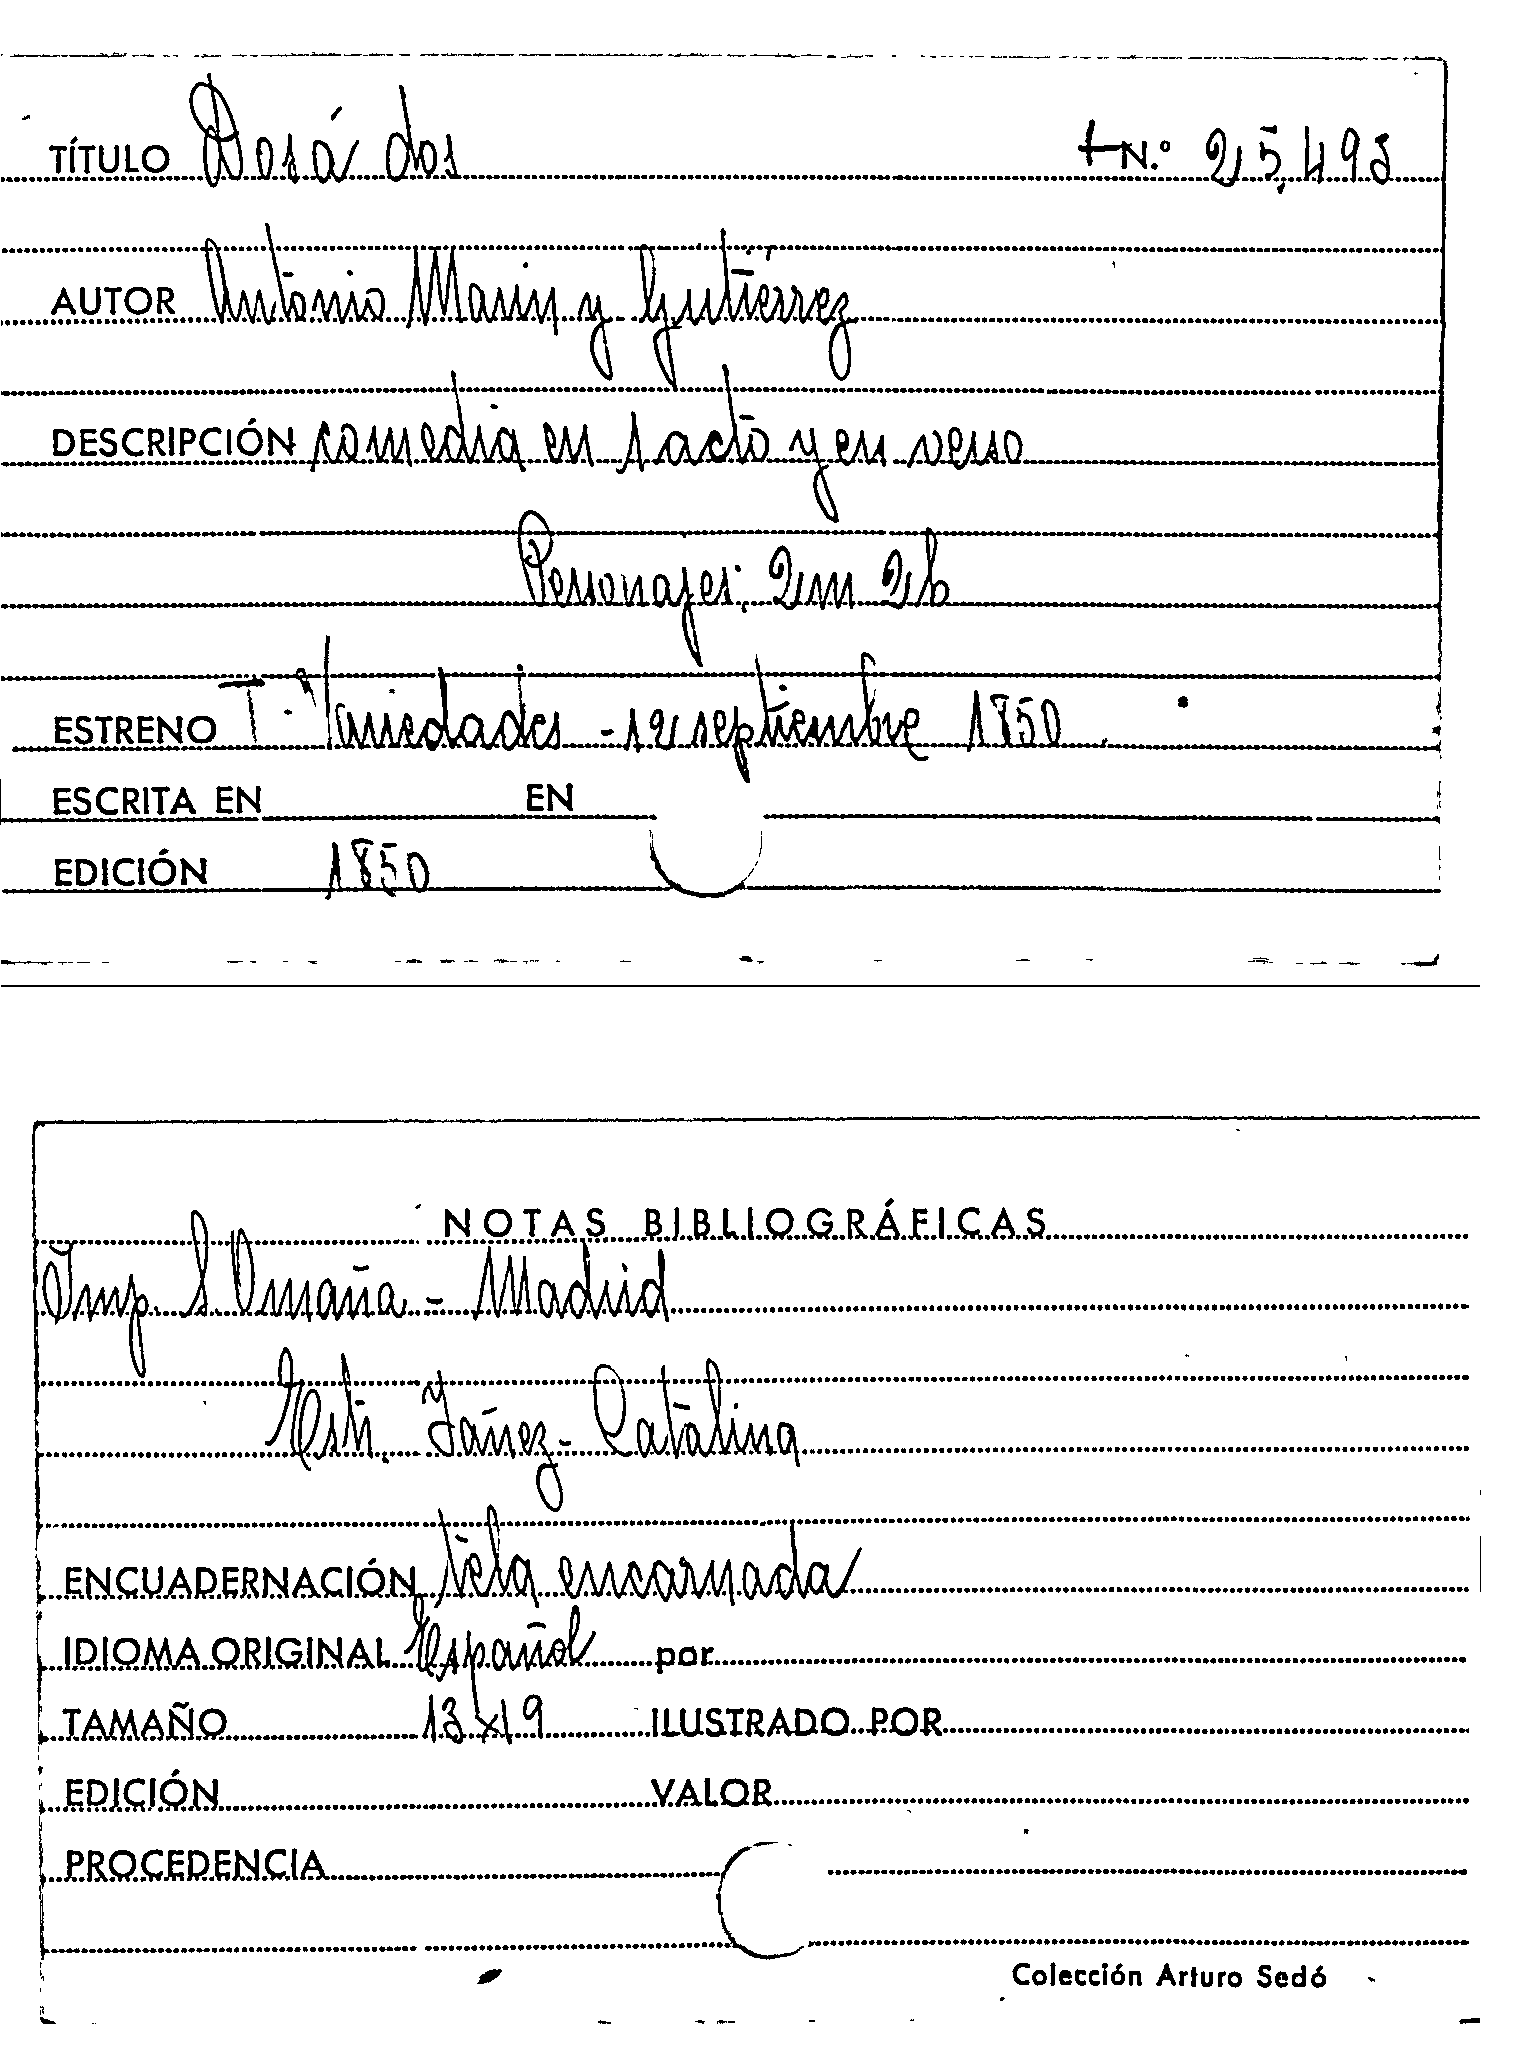 TÍTULO Dos á dos +N.º 25,493
AUTOR Antonio Marin y Gutiérrez
DESCRIPCIÓN comedia en 1 acto y en verso
Personajes: 2m 2h
ESTRENO T. Variedades - 12 septiembre 1850
ESCRITA EN EN
EDICIÓN 1850
NOTAS BIBLIOGRÁFICAS
Imp. S. Omaña - Madrid
Estr. Yañez - Catalina
ENCUADERNACIÓN tela encarnada
IDIOMA ORIGINAL Español por
TAMAÑO 13x19 ILUSTRADO POR
EDICIÓN VALOR
PROCEDENCIA
Colección Arturo Sedó